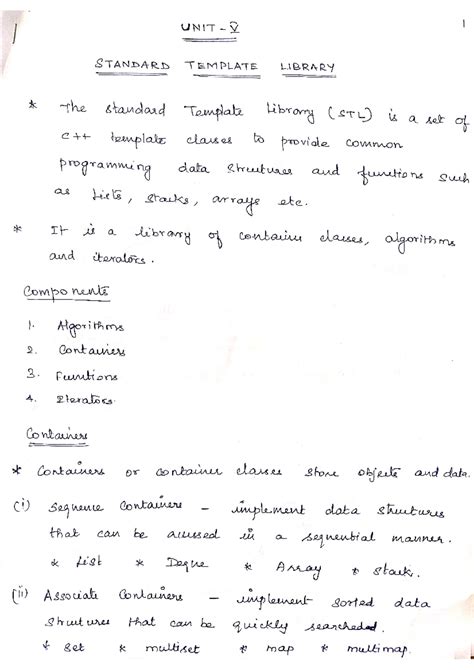 1
UNIT - V
STANDARD TEMPLATE LIBRARY
* The standard Template Library (STL) is a set of
C++ template classes to provide common
programming data structures and functions such
as Lists, stacks, arrays etc.
* It is a library of container classes, algorithms
and iterators.
Components
1. Algorithms
2. Containers
3. Functions
4. Iterators.
Containers
* Containers or container classes store objects and data.
(i) sequence Containers - implement data structures
that can be accessed in a sequential manner.
* List * Deque * Array * Stack.
(ii) Associate Containers - implement sorted data
structures that can be quickly searched.
* set * multiset * map * multimap.